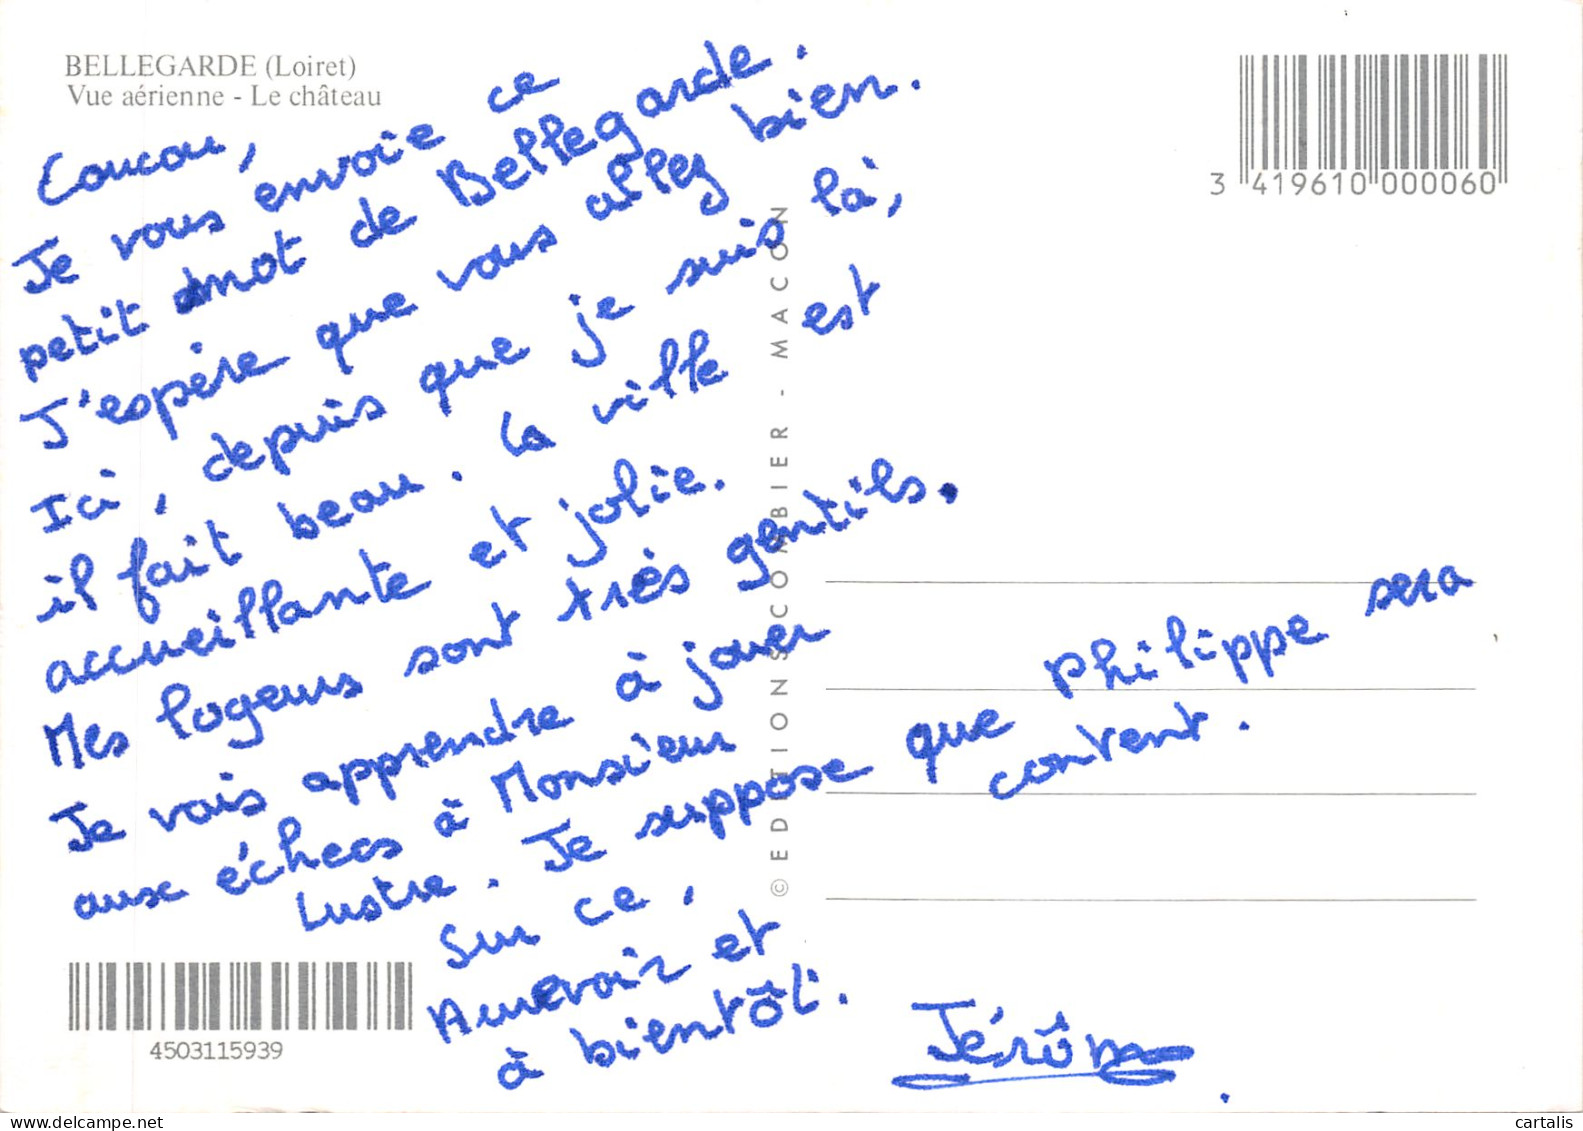 BELLEGARDE (Loiret)
Vue aérienne - Le château
3 419610 000060
Coucou,
Je vous envoie ce
petit mot de Bellegarde.
J'espère que vous allez bien.
Ici, depuis que je suis là,
il fait beau. La ville est
accueillante et jolie.
Mes logeurs sont très gentils.
Je vais apprendre à jouer
aux échecs à Monsieur
Lustre. Je suppose que Philippe sera
content.
Sur ce,
Aurevoir et
à bientôt.
Jérôme
© EDITIONS COMBIER - MACON
4503115939
www.delcampe.net
cartalis